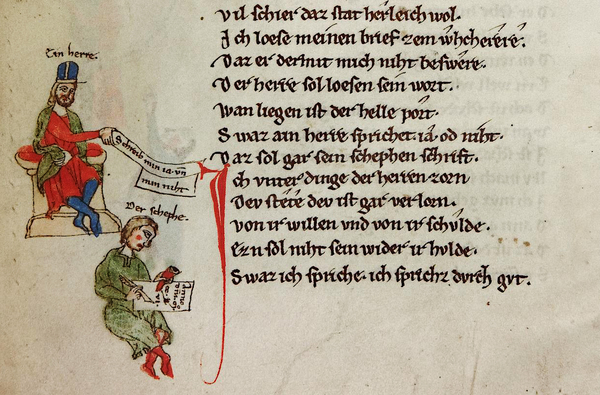 Ein herre.
Schreib min ia. vn
min niht
Der schephe.
vil schier daz stat herleich wol.
Ich loese meinen brief zem whcherere.
Daz er dermit mich niht beswere.
Der herre sol loesen sein wort.
wan liegen ist der helle port.
Swaz ain herre sprichet. ia od niht.
Daz sol gar sein schephen schrift.
Ich vnter dinge der herren zorn
Dev stete dev ist gar verlorn.
von ir willen vnd von ir schulde.
Ezn sol niht sein wider ir hulde.
Swaz ich spriche. ich sprichz durch gvt.